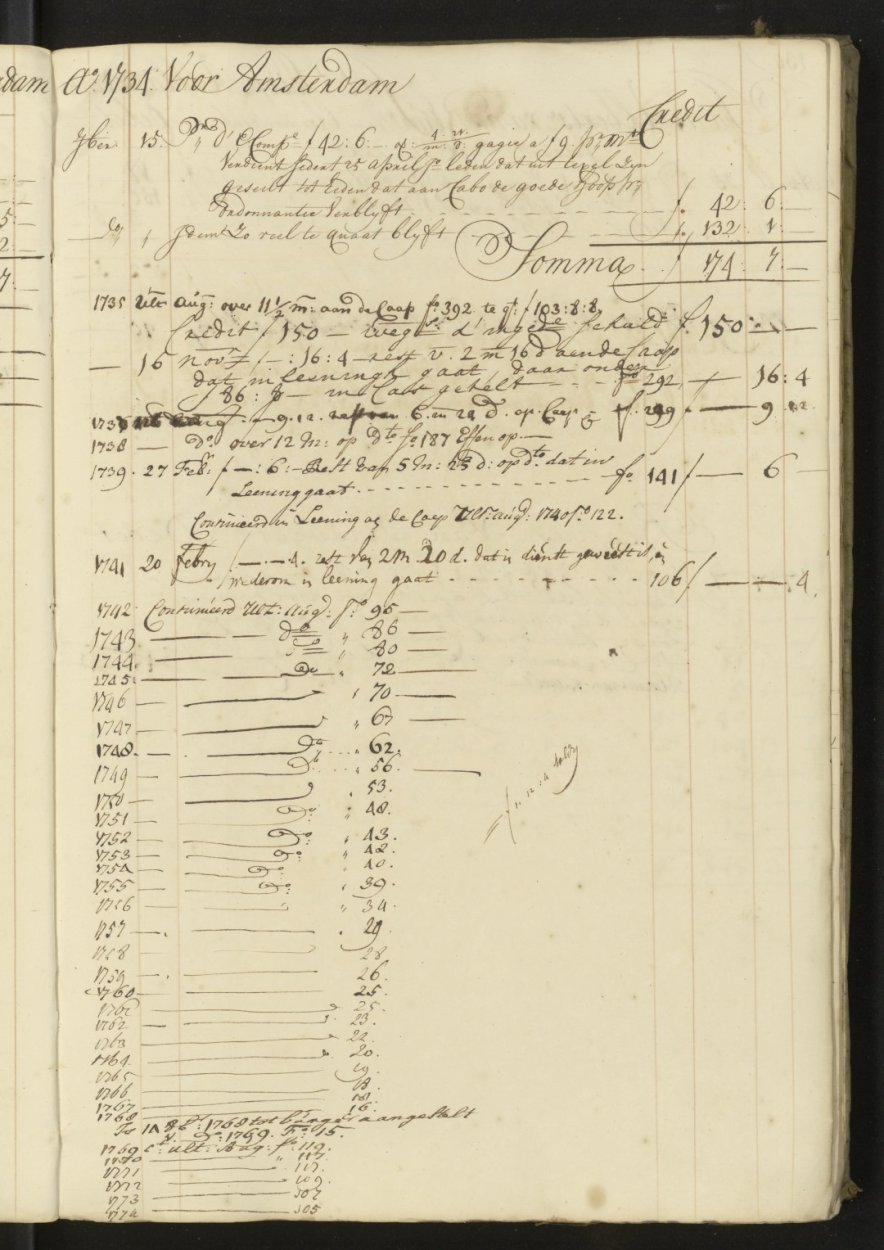 dam
A:o 1734. Voor Amsterdam
Credit
7ber 15. P:r d' E Comp:e ƒ 42: 6:— gagie a ƒ 9 p:r m:t
Verdient sedert 25 april leden dat uit texel Zyn
geseilt tot heden dat aan Cabo de goede Hoop
ordonnantie Verblyft - - - ƒ 42: 6:—
D:o Idem Zo veel te quaat blyft - - - ƒ 132: 1:—
Somma ƒ 174: 7:—
1735 Ult:o Aug: over 11 1/2 m: aan de Caap f:o 392. te g:t ƒ 103:8:8
Credit ƒ 150 — weg:s d' ƒ 150:—
— 16 nov: ƒ —:16:4 — rest v. 2 m 16 d aen de Caap
dat in leeninge gaat, daar onder
86: 8 — in Cas getelt - - - f:o 292 — 16:4
9.12. 6. m 22 d. op Caap f. 299 ƒ — 9 12.
1738 — D:o over 12 M: op D:to f:o 187 Effen op —
1739. 27 Feb: ƒ —:6:— Rest van 5 m: 25 d: op d:to dat in
Leening gaat - - - f:o 141 ƒ — 6 —
Continueerd in Leening a de Caep Ult:o aug: 1740 f:o 122.
1741 20 Febry ƒ — - 4. rest van 2 m. 20 d. dat in dienst geweest is, en
wederom in leening gaat - - - 106 ƒ — — 4.
1742 Continueerd Ult: Aug: f:o 95 —
1743 — D:o " 86 —
1744 — D:o " 80 —
1745 — D:o " 72 —
1746 — " 70 —
1747 — " 67 —
1748. — D:o " 62.
1749 — D:o " 56. —
1750 — " 53.
1751 — D:o " 48.
1752 — D:o " 43.
1753 — D:o " 42.
1754 — D:o " 40.
1755 — D:o " 39.
1756 — " 34.
1757 — . 29.
1758 — 28
1759 — 26.
1760 — 25.
1761 — 25.
1762 — 23.
1763 — 22.
1764 — 20.
1765 — 19.
1766 — 18.
1767 — 18.
1768 — 16.
1768 tot burger aangestelt
1769. F:o 15.
1769 ult: Aug: f:o 119.
1770 — " 117
1771 — 117.
1772 — 109.
1773 — 107
1774 — 105